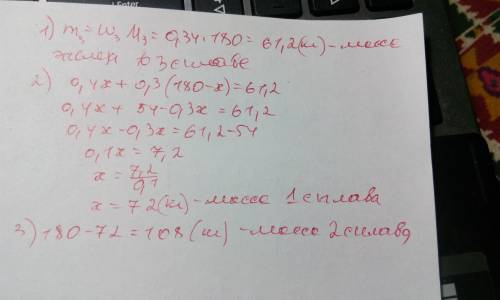 1) m₃ = w₃ M₃ = 0,34 · 180 = 61,2 (кг) - масса
в 3 сплаве
2) 0,4x + 0,3 (180 - x) = 61,2
0,4x + 54 - 0,3x = 61,2
0,4x - 0,3x = 61,2 - 54
0,1x = 7,2
x = 7,2/0,1
x = 72 (кг) - масса 1 сплава
3) 180 - 72 = 108 (кг) - масса 2 сплава